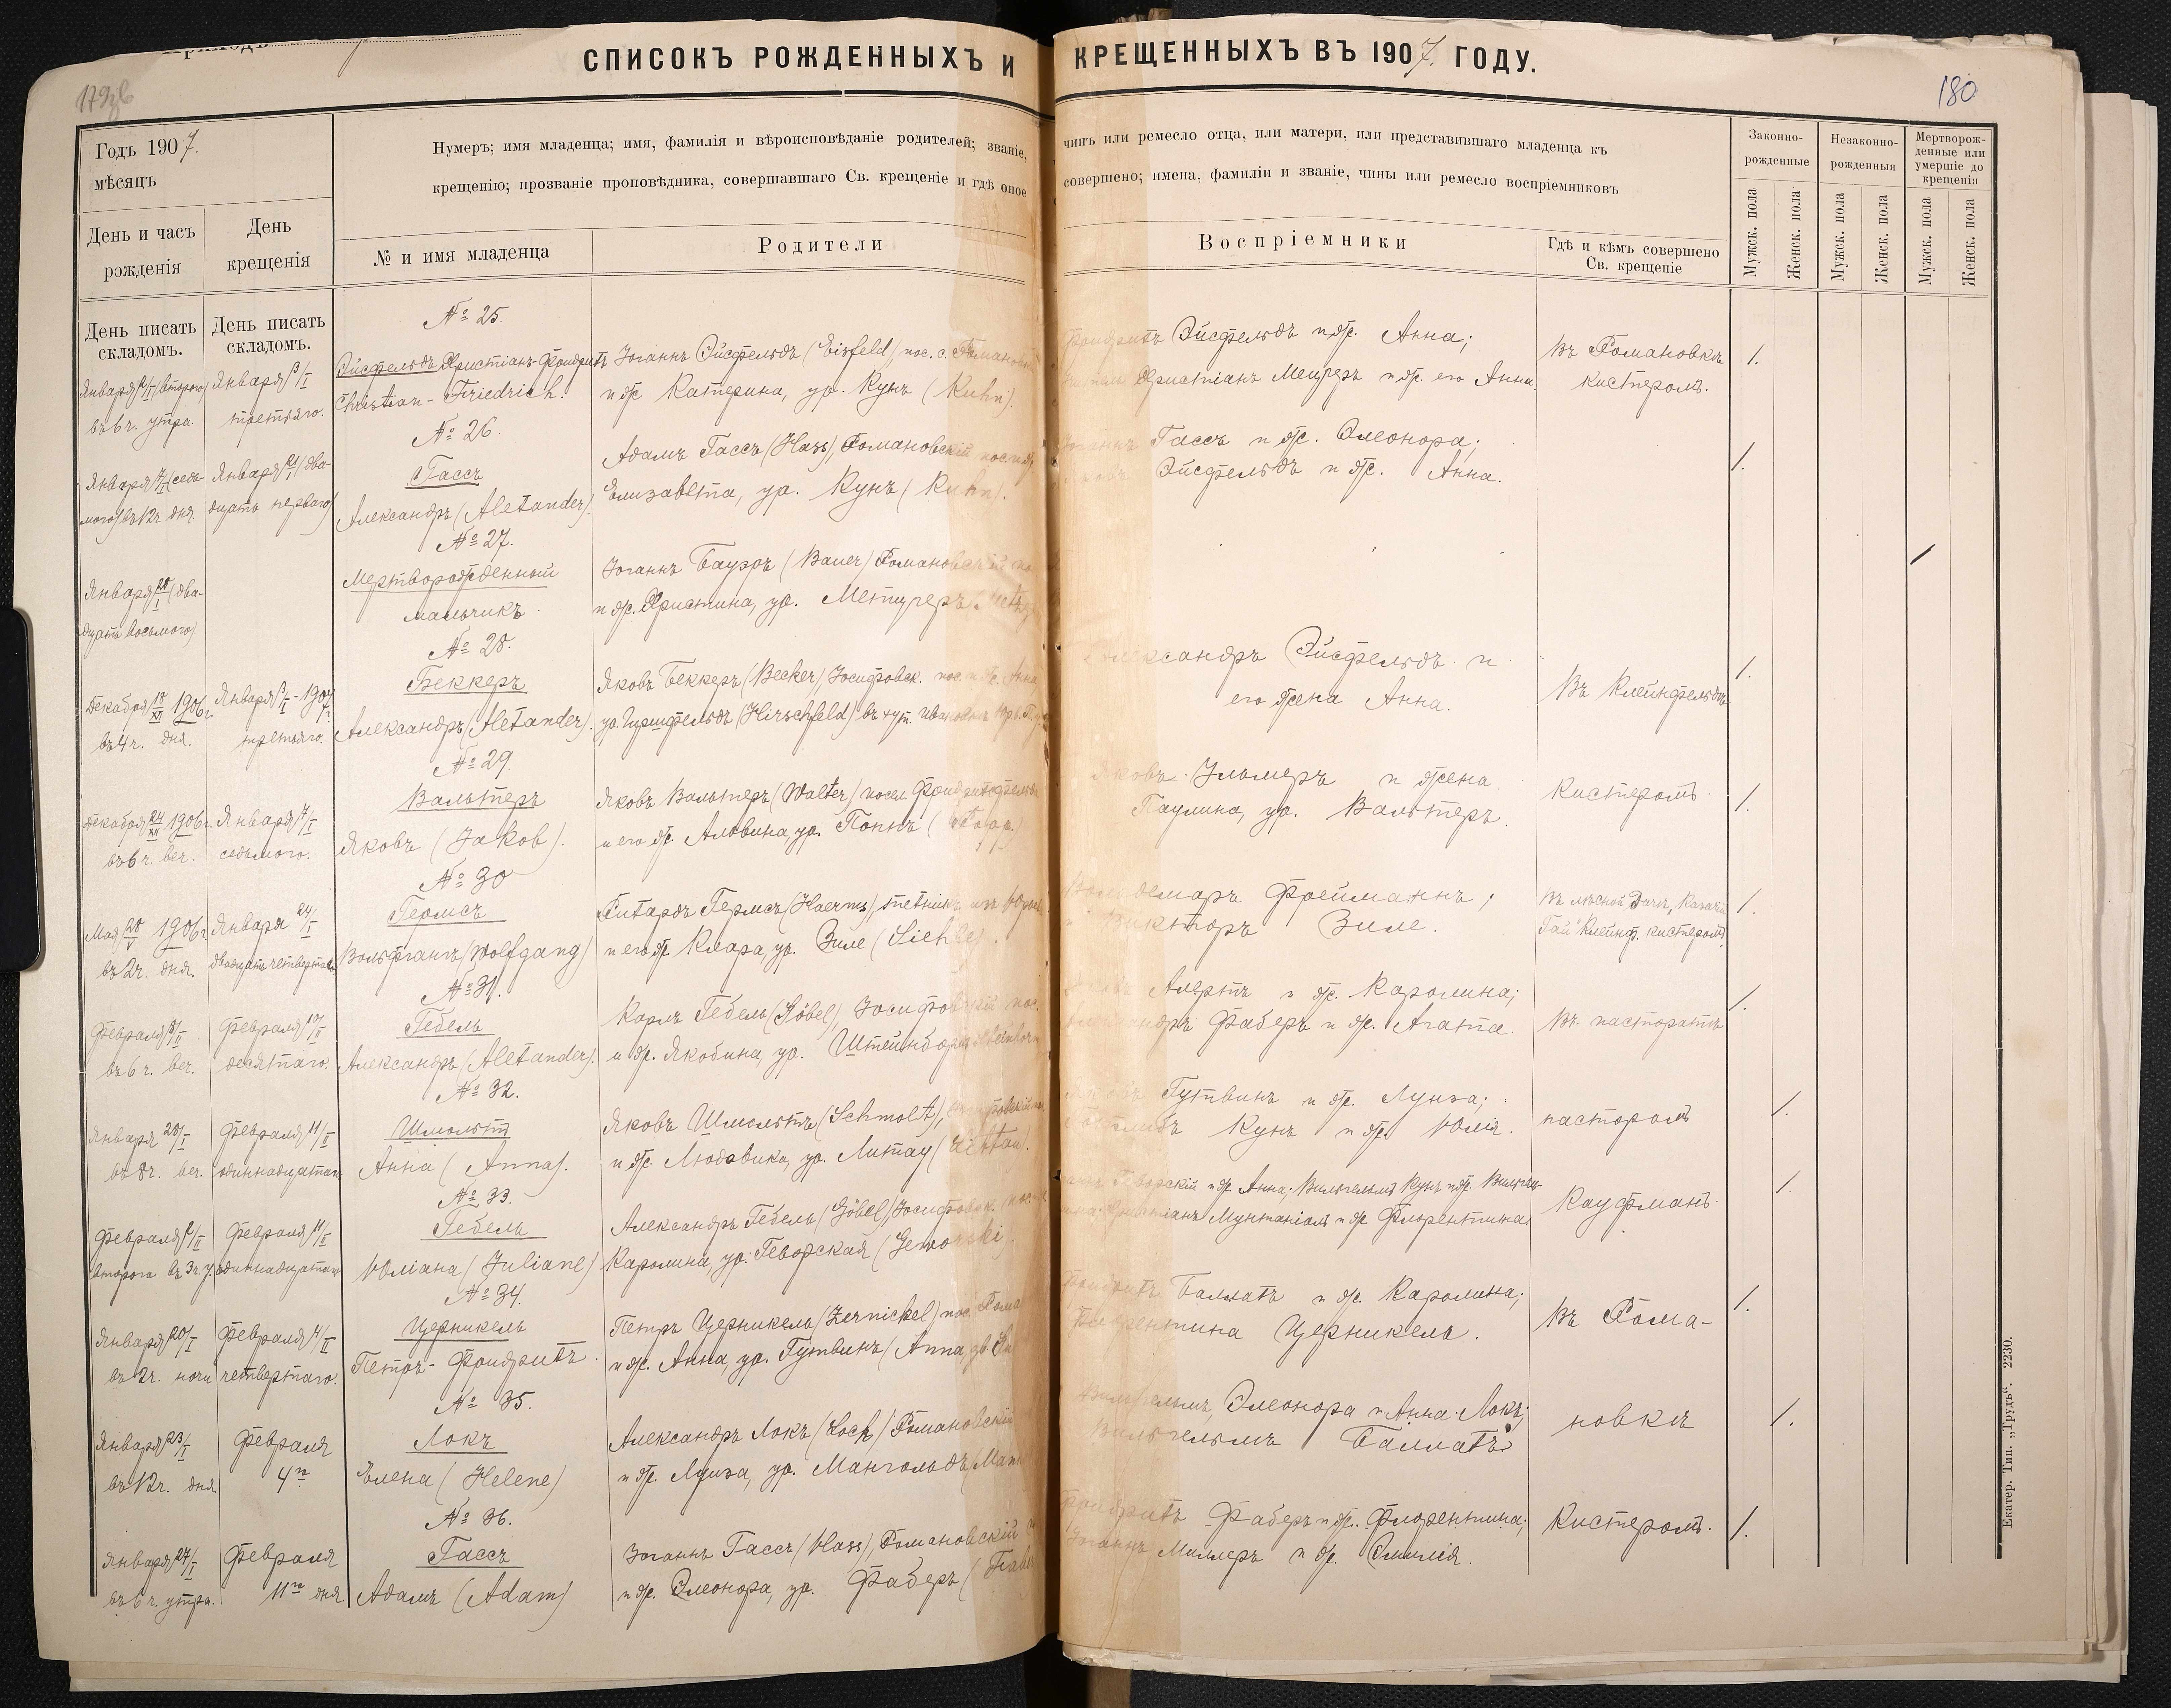 179об
СПИСОКЪ РОЖДЕННЫХЪ И КРЕЩЕННЫХЪ ВЪ 1907 ГОДУ.
180
Годъ 1907.
мѣсяцъ
Нумеръ; имя младенца; имя, фамилія и вѣроисповѣданіе родителей; званіе, чинъ или ремесло отца, или матери, или представившаго младенца къ
крещенію; прозваніе проповѣдника, совершавшаго Св. крещеніе и гдѣ оное совершено; имена, фамиліи и званіе, чины или ремесло воспріемниковъ
День и часъ
рожденія
День
крещенія
№ и имя младенца
Родители
Воспріемники
Гдѣ и кѣмъ совершено
Св. крещеніе
Законно-
рожденные
Незаконно-
рожденныя
Мертворож-
денные или
умершіе до
крещенія
Мужск. пола
Женск. пола
Мужск. пола
Женск. пола
Мужск. пола
Женск. пола
День писать
складомъ.
День писать
складомъ.
№ 25.
Января 2/I (второго)
въ 6 ч. утра.
Января 3/I
третьяго.
Эйсфельдъ Христіанъ-Фридрихъ
Christian-Friedrich.
Іоганнъ Эйсфельдъ (Eisfeld), пос. с.
и ж. Катерина, ур. Кунъ (Kuhn).
Эйсфельдъ и ж. Анна;
Христіанъ Мецгеръ и ж. его Анна.
Въ Романовкѣ
кистеромъ.
1.
№ 26.
Января 7/I (седь-
мого) въ 12 ч. дня.
Января 21/I (два-
дцать перваго)
Гассъ
Александръ (Alexander).
Адамъ Гассъ (Hass), Романовскій
Елизавета, ур. Кунъ (Kuhn).
Гассъ и ж. Элеонора;
Эйсфельдъ и ж. Анна.
1.
№ 27.
Января 28/I (два-
дцать восьмого).
Мертворожденный
мальчикъ.
Іоганнъ Бауэръ (Bauer) Романовскій
и ж. Христина, ур. Метцгеръ
/
№ 28.
Декабря 18/XII 1906 г.
въ 4 ч. дня.
Января 3/I - 1907 г.
третьяго.
Беккеръ
Александръ (Alexander).
Яковъ Беккеръ (Becker), Іосифовск. пос. и ж. Анна
ур. Гиршфельдъ (Hirschfeld) въ хут.
Александръ Эйсфельдъ и
его жена Анна.
Въ Клейнфельдѣ
1.
№ 29.
Декабря 24/XII 1906 г.
въ 6 ч. веч.
Января 7/I
седьмого.
Вальтеръ
Яковъ (Jakob).
Яковъ Вальтеръ (Walter) посел.
и его ж. Альвина, ур. Поппъ
Яковъ Ульмеръ и жена
Паулина, ур. Вальтеръ.
Кистеромъ.
1.
№ 30
Мая 28/V 1906 г.
въ 2 ч. дня.
Января 24/I
двадцать четвертаго
Гермсъ
Вольфгангъ (Wolfgang)
Рихардъ Гермсъ (Haerms),
и его ж. Клара, ур. Зиле (Siehle).
Фрейманнъ;
Викторъ Зиле.
Въ лѣсной дачѣ „Казачій
Гай“ Клейнф. кистеромъ.
1.
№ 31.
Февраля 8/II
въ 6 ч. веч.
Февраля 10/II
десятаго.
Гебель
Александръ (Alexander).
Карлъ Гебель (Göbel), Іосифовскій пос.
и ж. Якобина, ур. Штейнборнъ
Алертъ и ж. Каролина;
Фаберъ и ж. Агата.
Въ пасторатѣ
1.
№ 32.
Января 28/I
въ 8 ч. веч.
Февраля 11/II
одиннадцатаго
Шмольтъ
Анна (Anna).
Яковъ Шмольтъ (Schmolt),
и ж. Людовика, ур. Литау
Гутвинъ и ж. Луиза;
Кунъ и ж. Юлія.
пасторомъ
1.
№ 33.
Февраля 2/II
второго въ 3 ч. у.
Февраля 11/II
одиннадцатаго
Гебель
Юліана (Juliane)
Александръ Гебель (Göbel), Іосифовск.
Каролина, ур. Геворская (Geworski).
Геворскій и ж. Анна; Вильгельмъ Кунъ и ж.
Мунтаніолъ и ж. Флорентина.
Кауфманъ.
1.
№ 34.
Января 20/I
въ 2 ч. ночи
Февраля 4/II
четвертаго.
Церникель
Петръ-Фридрихъ.
Петръ Церникель (Zernickel) пос.
и ж. Анна, ур. Гутвинъ
Баллатъ и ж. Каролина;
Церникель.
Въ Рома-
1.
№ 35.
Января 23/I
въ 12 ч. дня
Февраля
4го
Локъ
Елена (Helene)
Александръ Локъ (Loch) Романовскій
и ж. Луиза, ур. Мангольдъ
Элеонора и Анна Локъ;
Вильгельмъ Баллатъ
новкѣ
1.
№ 36.
Января 27/I
въ 6 ч. утра.
Февраля
11го дня
Гассъ
Адамъ (Adam)
Іоганнъ Гассъ (Hass), Романовскій
и ж. Элеонора, ур. Фаберъ
Фридрихъ Фаберъ и ж. Флорентина;
Іоганнъ Миллеръ и ж. Эмилія.
Кистеромъ.
1.
Екатер. Тип. „Трудъ“. 2230.